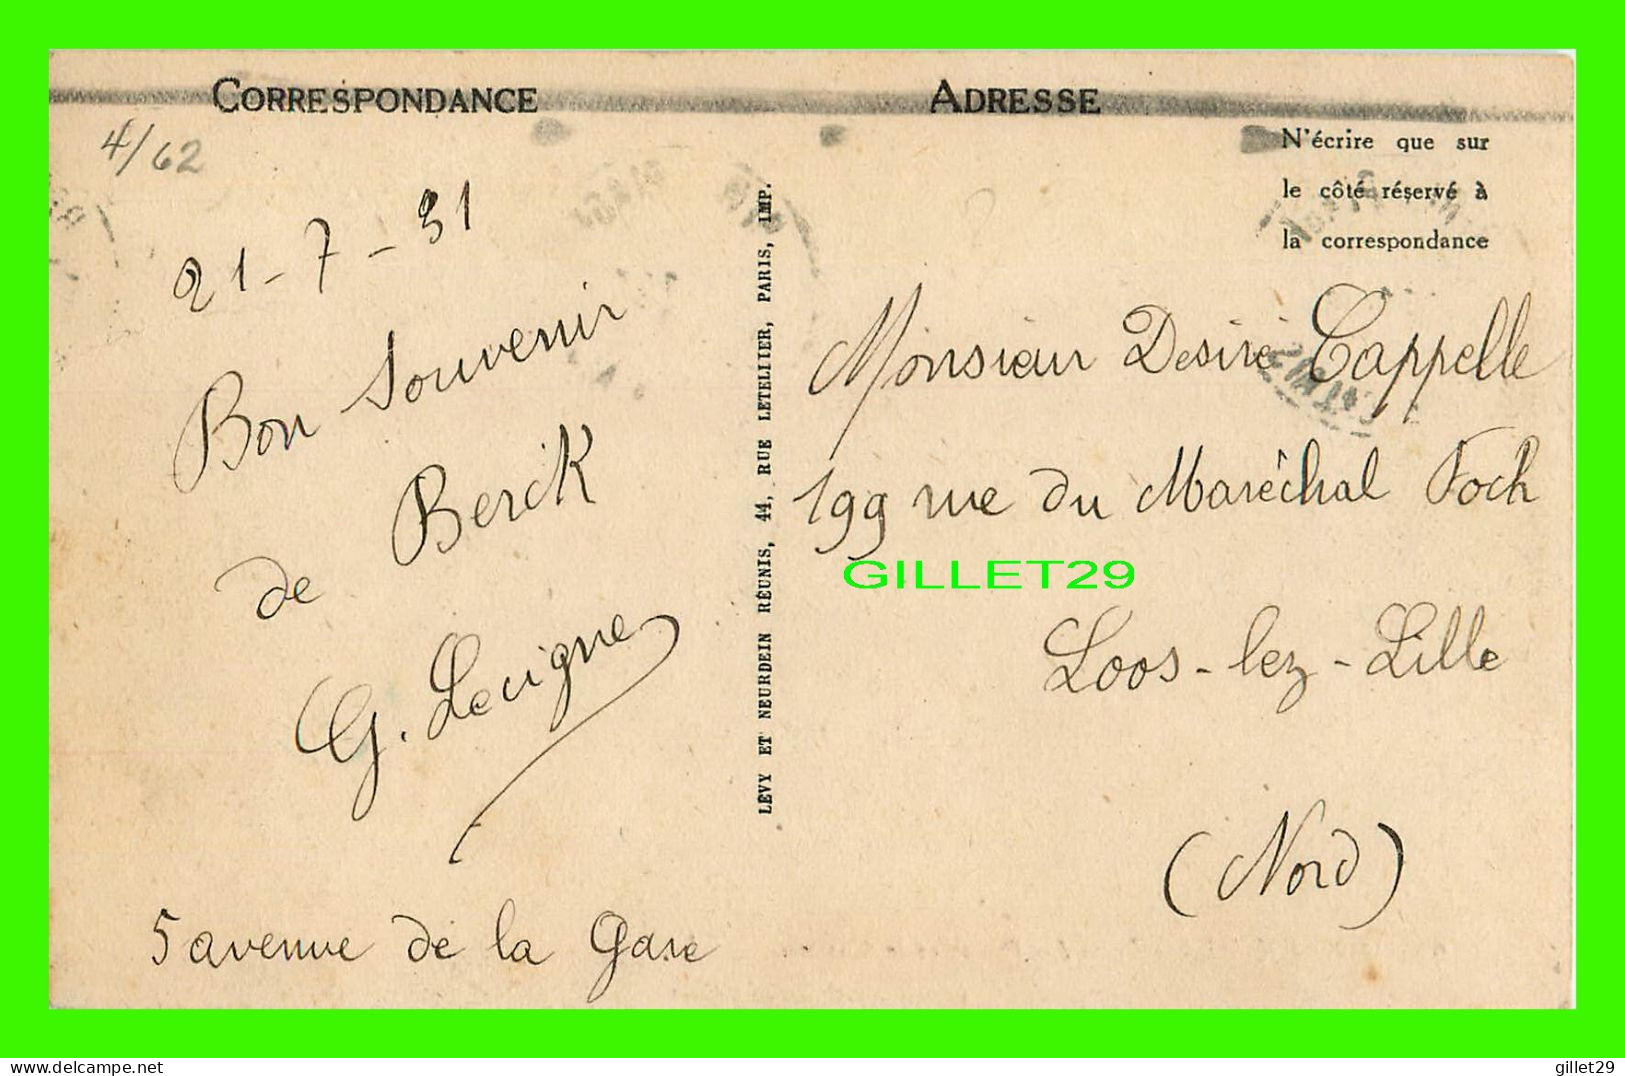 CORRESPONDANCE
4/62
21-7-31
Bon Souvenir
de Berck
G. Lavigne
5 avenue de la Gare
LÉVY ET NEURDEIN RÉUNIS, 44, RUE LETELIER, PARIS, IMP.
ADRESSE
N'écrire que sur
le côté réservé à
la correspondance
Monsieur Desiré Cappelle
199 rue du Maréchal Foch
GILLET29
Loos-lez-Lille
(Nord)
delcampe.net
gillet29